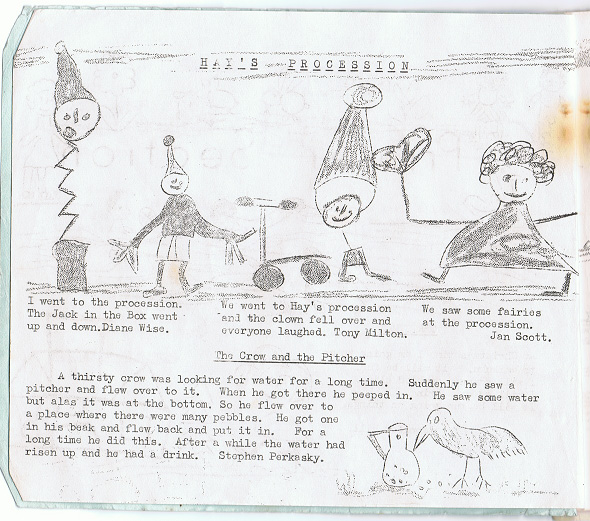 HAY'S PROCESSION
I went to the procession.
The Jack in the Box went
up and down.Diane Wise.
We went to Hay's procession
and the clown fell over and
everyone laughed. Tony Milton.
We saw some fairies
at the procession.
Jan Scott.
The Crow and the Pitcher
A thirsty crow was looking for water for a long time. Suddenly he saw a
pitcher and flew over to it. When he got there he peeped in. He saw some water
but alas it was at the bottom. So he flew over to
a place where there were many pebbles. He got one
in his beak and flew back and put it in. For a
long time he did this. After a while the water had
risen up and he had a drink. Stephen Perkasky.